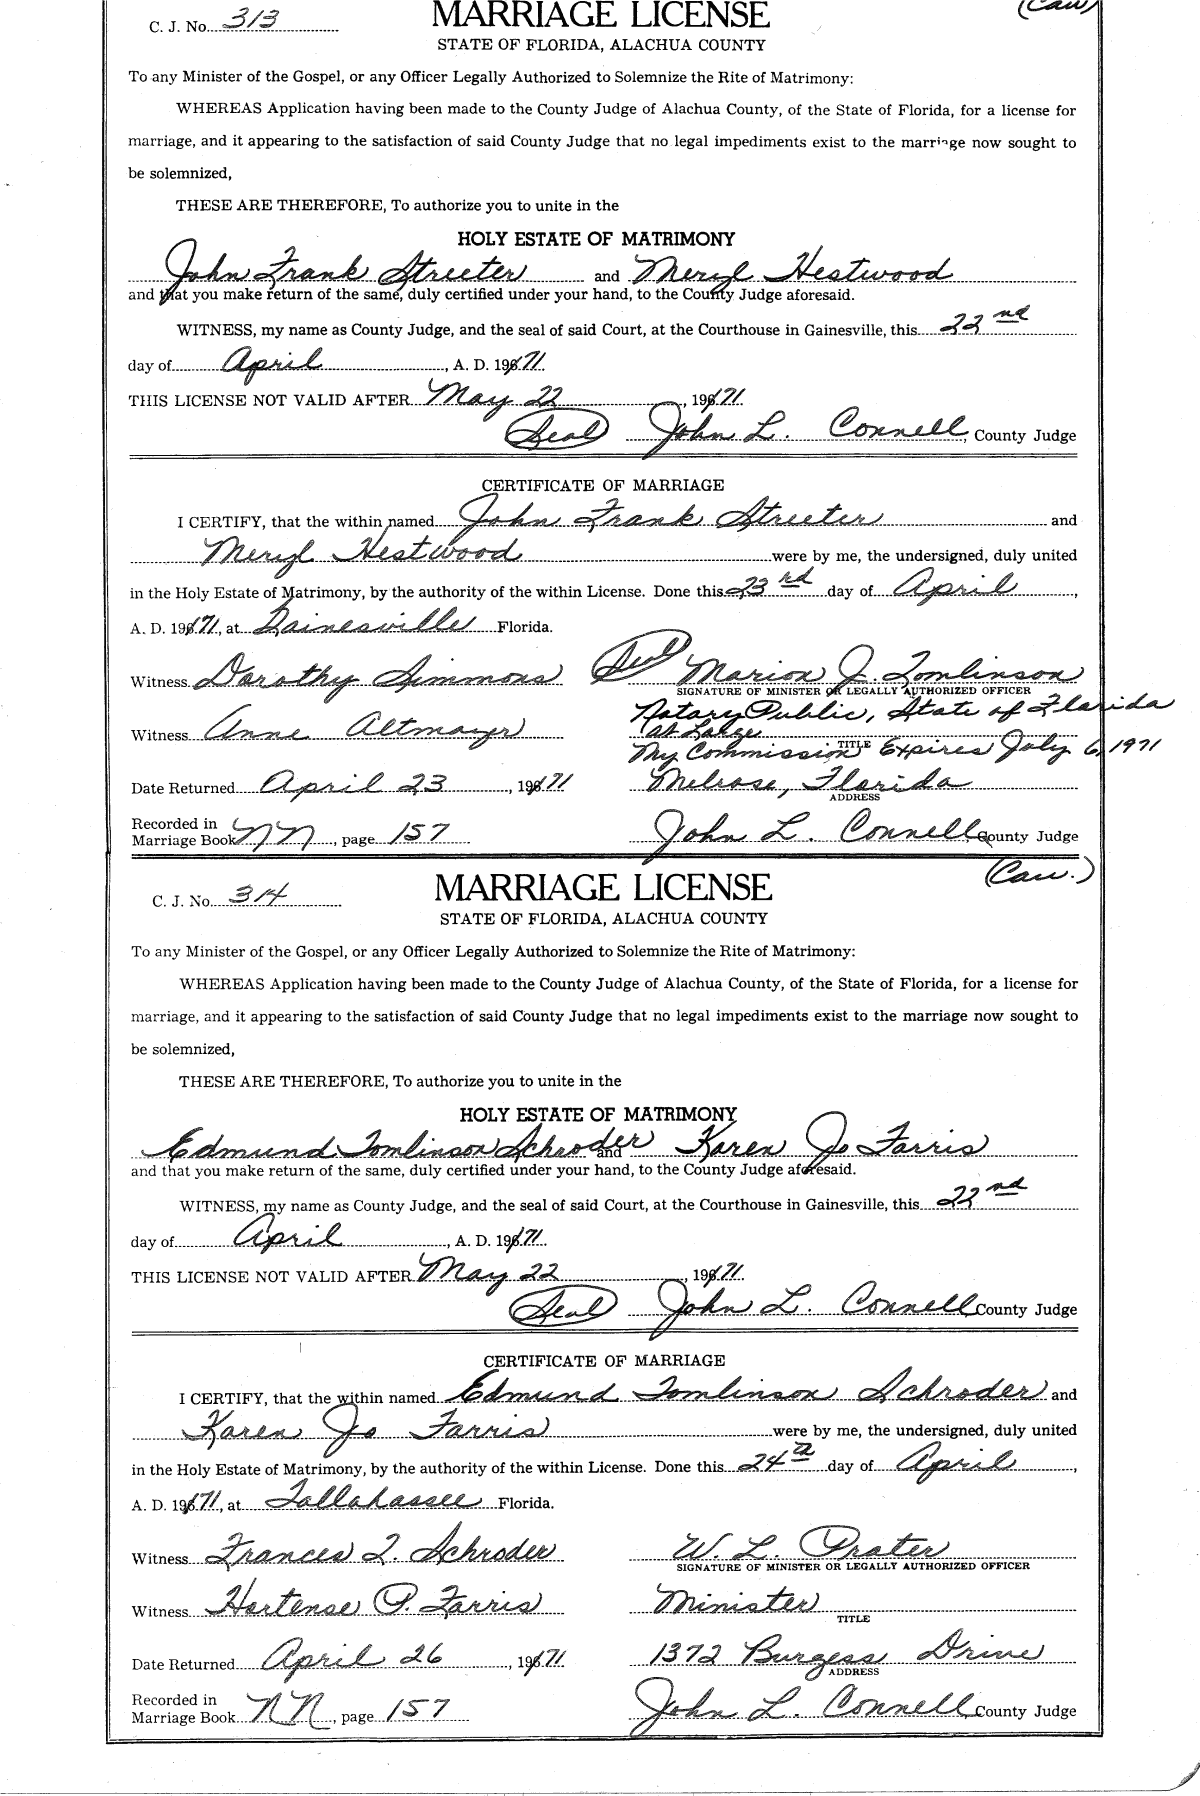 C. J. No. 313 MARRIAGE LICENSE (Cau)
STATE OF FLORIDA, ALACHUA COUNTY
To any Minister of the Gospel, or any Officer Legally Authorized to Solemnize the Rite of Matrimony:
WHEREAS Application having been made to the County Judge of Alachua County, of the State of Florida, for a license for
marriage, and it appearing to the satisfaction of said County Judge that no legal impediments exist to the marriage now sought to
be solemnized,
THESE ARE THEREFORE, To authorize you to unite in the
HOLY ESTATE OF MATRIMONY
John Frank Streeter and Meryl Hestwood
and that you make return of the same, duly certified under your hand, to the County Judge aforesaid.
WITNESS, my name as County Judge, and the seal of said Court, at the Courthouse in Gainesville, this 22nd
day of April, A. D. 1971.
THIS LICENSE NOT VALID AFTER May 22, 1971.
(Seal) John L. Connell, County Judge
CERTIFICATE OF MARRIAGE
I CERTIFY, that the within named John Frank Streeter and
Meryl Hestwood were by me, the undersigned, duly united
in the Holy Estate of Matrimony, by the authority of the within License. Done this 23rd day of April,
A. D. 1971, at Gainesville Florida.
Witness Dorothy Simmons (Seal) Marion J. Tomlinson
SIGNATURE OF MINISTER OR LEGALLY AUTHORIZED OFFICER
Notary Public, State of Florida
Witness Anne Altmayer at Large
My Commission Expires July 6, 1971
TITLE
Date Returned April 23, 1971 Melrose, Florida
ADDRESS
Recorded in
Marriage Book NN, page 157 John L. Connell County Judge
C. J. No. 314 MARRIAGE LICENSE (Cau.)
STATE OF FLORIDA, ALACHUA COUNTY
To any Minister of the Gospel, or any Officer Legally Authorized to Solemnize the Rite of Matrimony:
WHEREAS Application having been made to the County Judge of Alachua County, of the State of Florida, for a license for
marriage, and it appearing to the satisfaction of said County Judge that no legal impediments exist to the marriage now sought to
be solemnized,
THESE ARE THEREFORE, To authorize you to unite in the
HOLY ESTATE OF MATRIMONY
Edmund Tomlinson Schroder and Karen Jo Farris
and that you make return of the same, duly certified under your hand, to the County Judge aforesaid.
WITNESS, my name as County Judge, and the seal of said Court, at the Courthouse in Gainesville, this 22nd
day of April, A. D. 1971.
THIS LICENSE NOT VALID AFTER May 22, 1971.
(Seal) John L. Connell County Judge
CERTIFICATE OF MARRIAGE
I CERTIFY, that the within named Edmund Tomlinson Schroder and
Karen Jo Farris were by me, the undersigned, duly united
in the Holy Estate of Matrimony, by the authority of the within License. Done this 24th day of April,
A. D. 1971, at Tallahassee Florida.
Witness Frances T. Schroder W. L. Prater
SIGNATURE OF MINISTER OR LEGALLY AUTHORIZED OFFICER
Witness Hortense P. Farris Minister
TITLE
Date Returned April 26, 1971 1372 Burgess Drive
ADDRESS
Recorded in
Marriage Book NN, page 157 John L. Connell County Judge